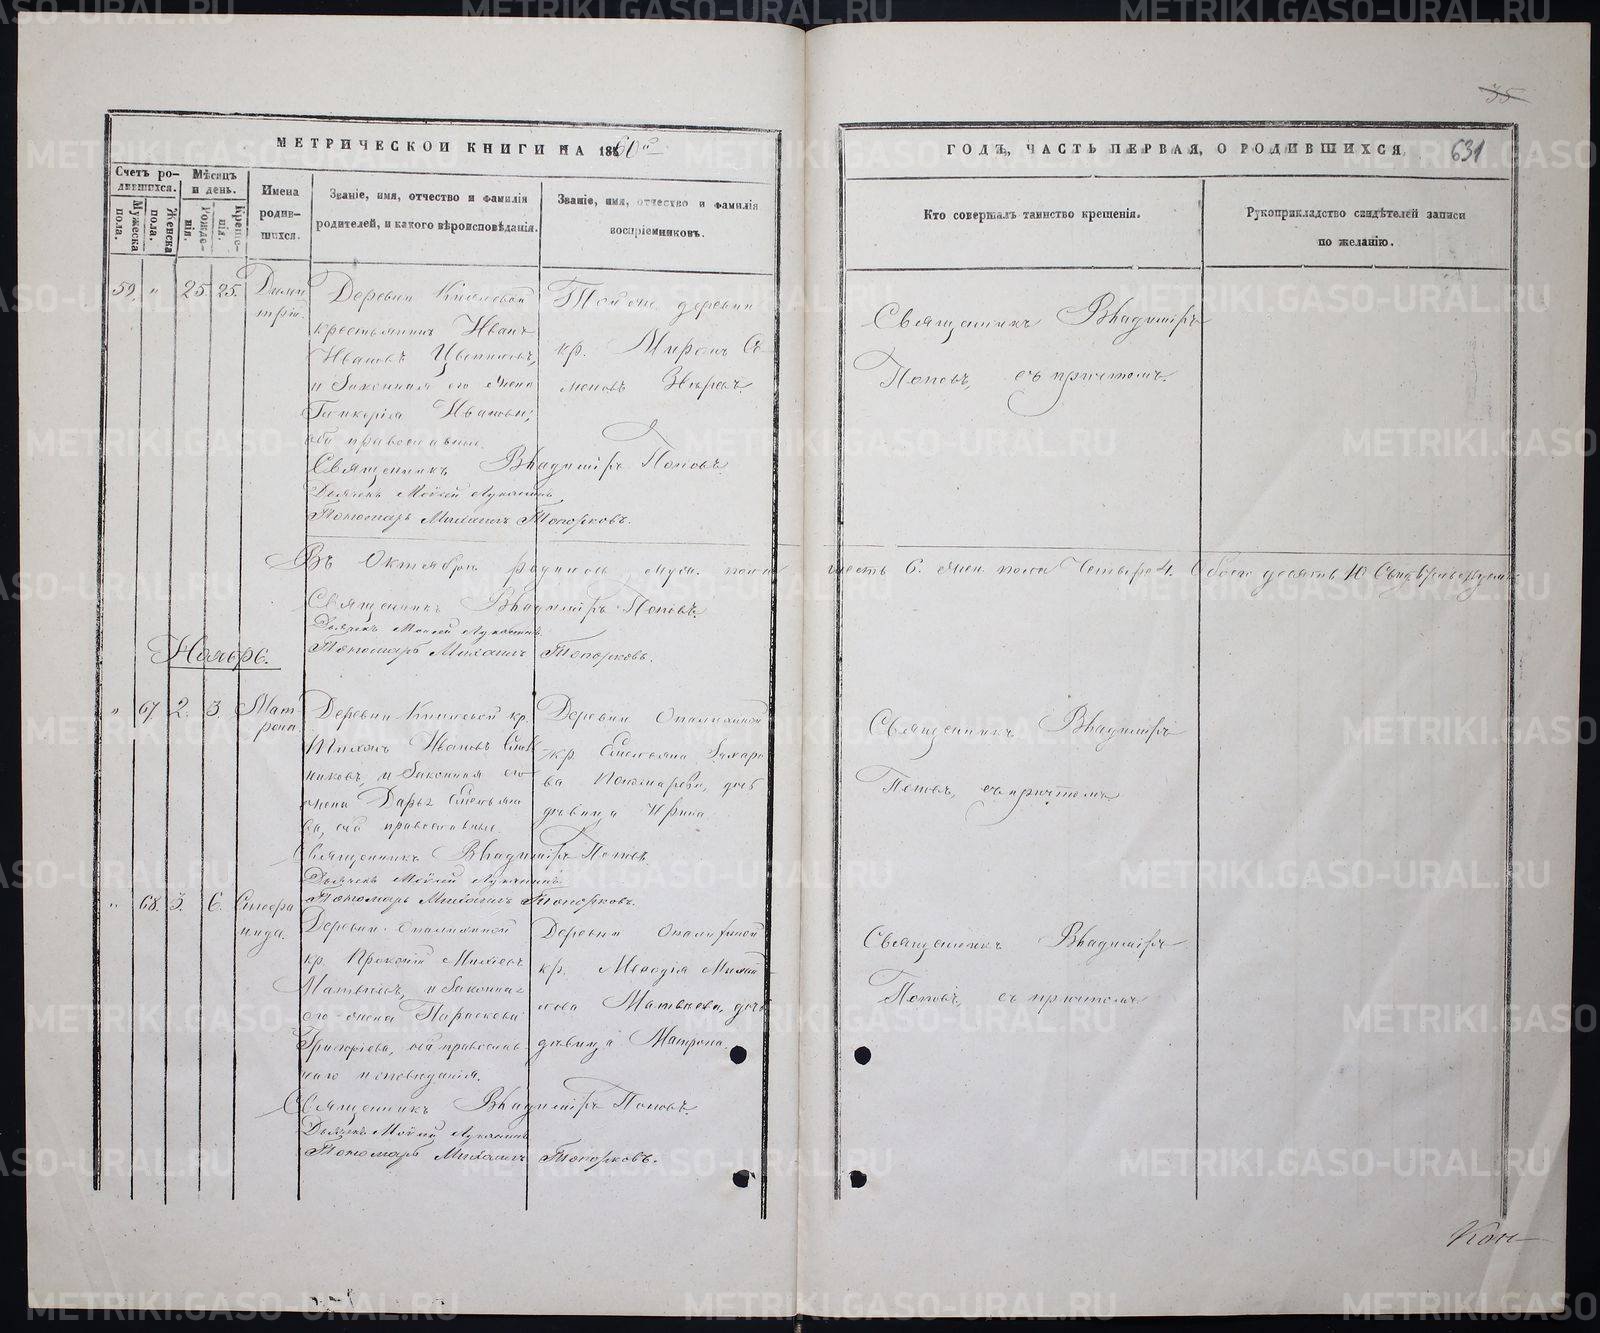 35
МЕТРИЧЕСКОЙ КНИГИ НА 1860й
ГОДЪ, ЧАСТЬ ПЕРВАЯ, О РОДИВШИХСЯ
631
Счетъ родившихся.
Мужеска пола.
Женска пола.
Мѣсяцъ и день.
Рожденія.
Крещенія.
Имена родившихся.
Званіе, имя, отчество и фамилія
родителей, и какого вѣроисповѣданія.
Званіе, имя, отчество и фамилія
воспріемниковъ.
Кто совершалъ таинство крещенія.
Рукоприкладство свидѣтелей записи
по желанію.
59. " 25. 25. Димитрій.
Деревни
крестьянинъ Иванъ
Ивановъ
и законная его жена
Гликерія Иванова,
оба православные.
Той же деревни
кр. Миронъ Се-
меновъ
Священникъ Владиміръ
Поповъ, съ причтомъ.
Священникъ Владиміръ Поповъ.
Дьячекъ Моѵсей
Пономарь Михаилъ Топорковъ.
Въ Октябрѣ родилось муж. пола шесть 6. жен. пола четыре 4. Обоего десять 10
Священникъ Владиміръ Поповъ.
Дьячекъ Моѵсей
Пономарь Михаилъ Топорковъ.
Ноябрь.
" 67 2. 3. Матрона
Деревни кр.
Тихонъ Ивановъ
и законная его
жена Дарья Емельяно-
ва, оба православные.
Деревни
кр. Емельяна Захаро-
ва Пономарева, дочь
дѣвица Ирина
Священникъ Владиміръ
Поповъ, съ причтомъ
Священникъ Владиміръ Поповъ
Дьячекъ Моѵсей
Пономарь Михаилъ Топорковъ.
" 68. 5. 6. Степанида.
Деревни
кр. Прокопій
Матвѣевъ, и законная
его жена Параскева
Григорьева, оба православ-
наго исповѣданія.
Деревни
кр. Меѳодія Михай-
лова Матвѣева, дочь
дѣвица Матрона.
Священникъ Владиміръ
Поповъ, съ причтомъ
Священникъ Владиміръ Поповъ.
Дьячекъ Моѵсей
Пономарь Михаилъ Топорковъ.
Кон-
METRIKI.GASO-URAL.RU